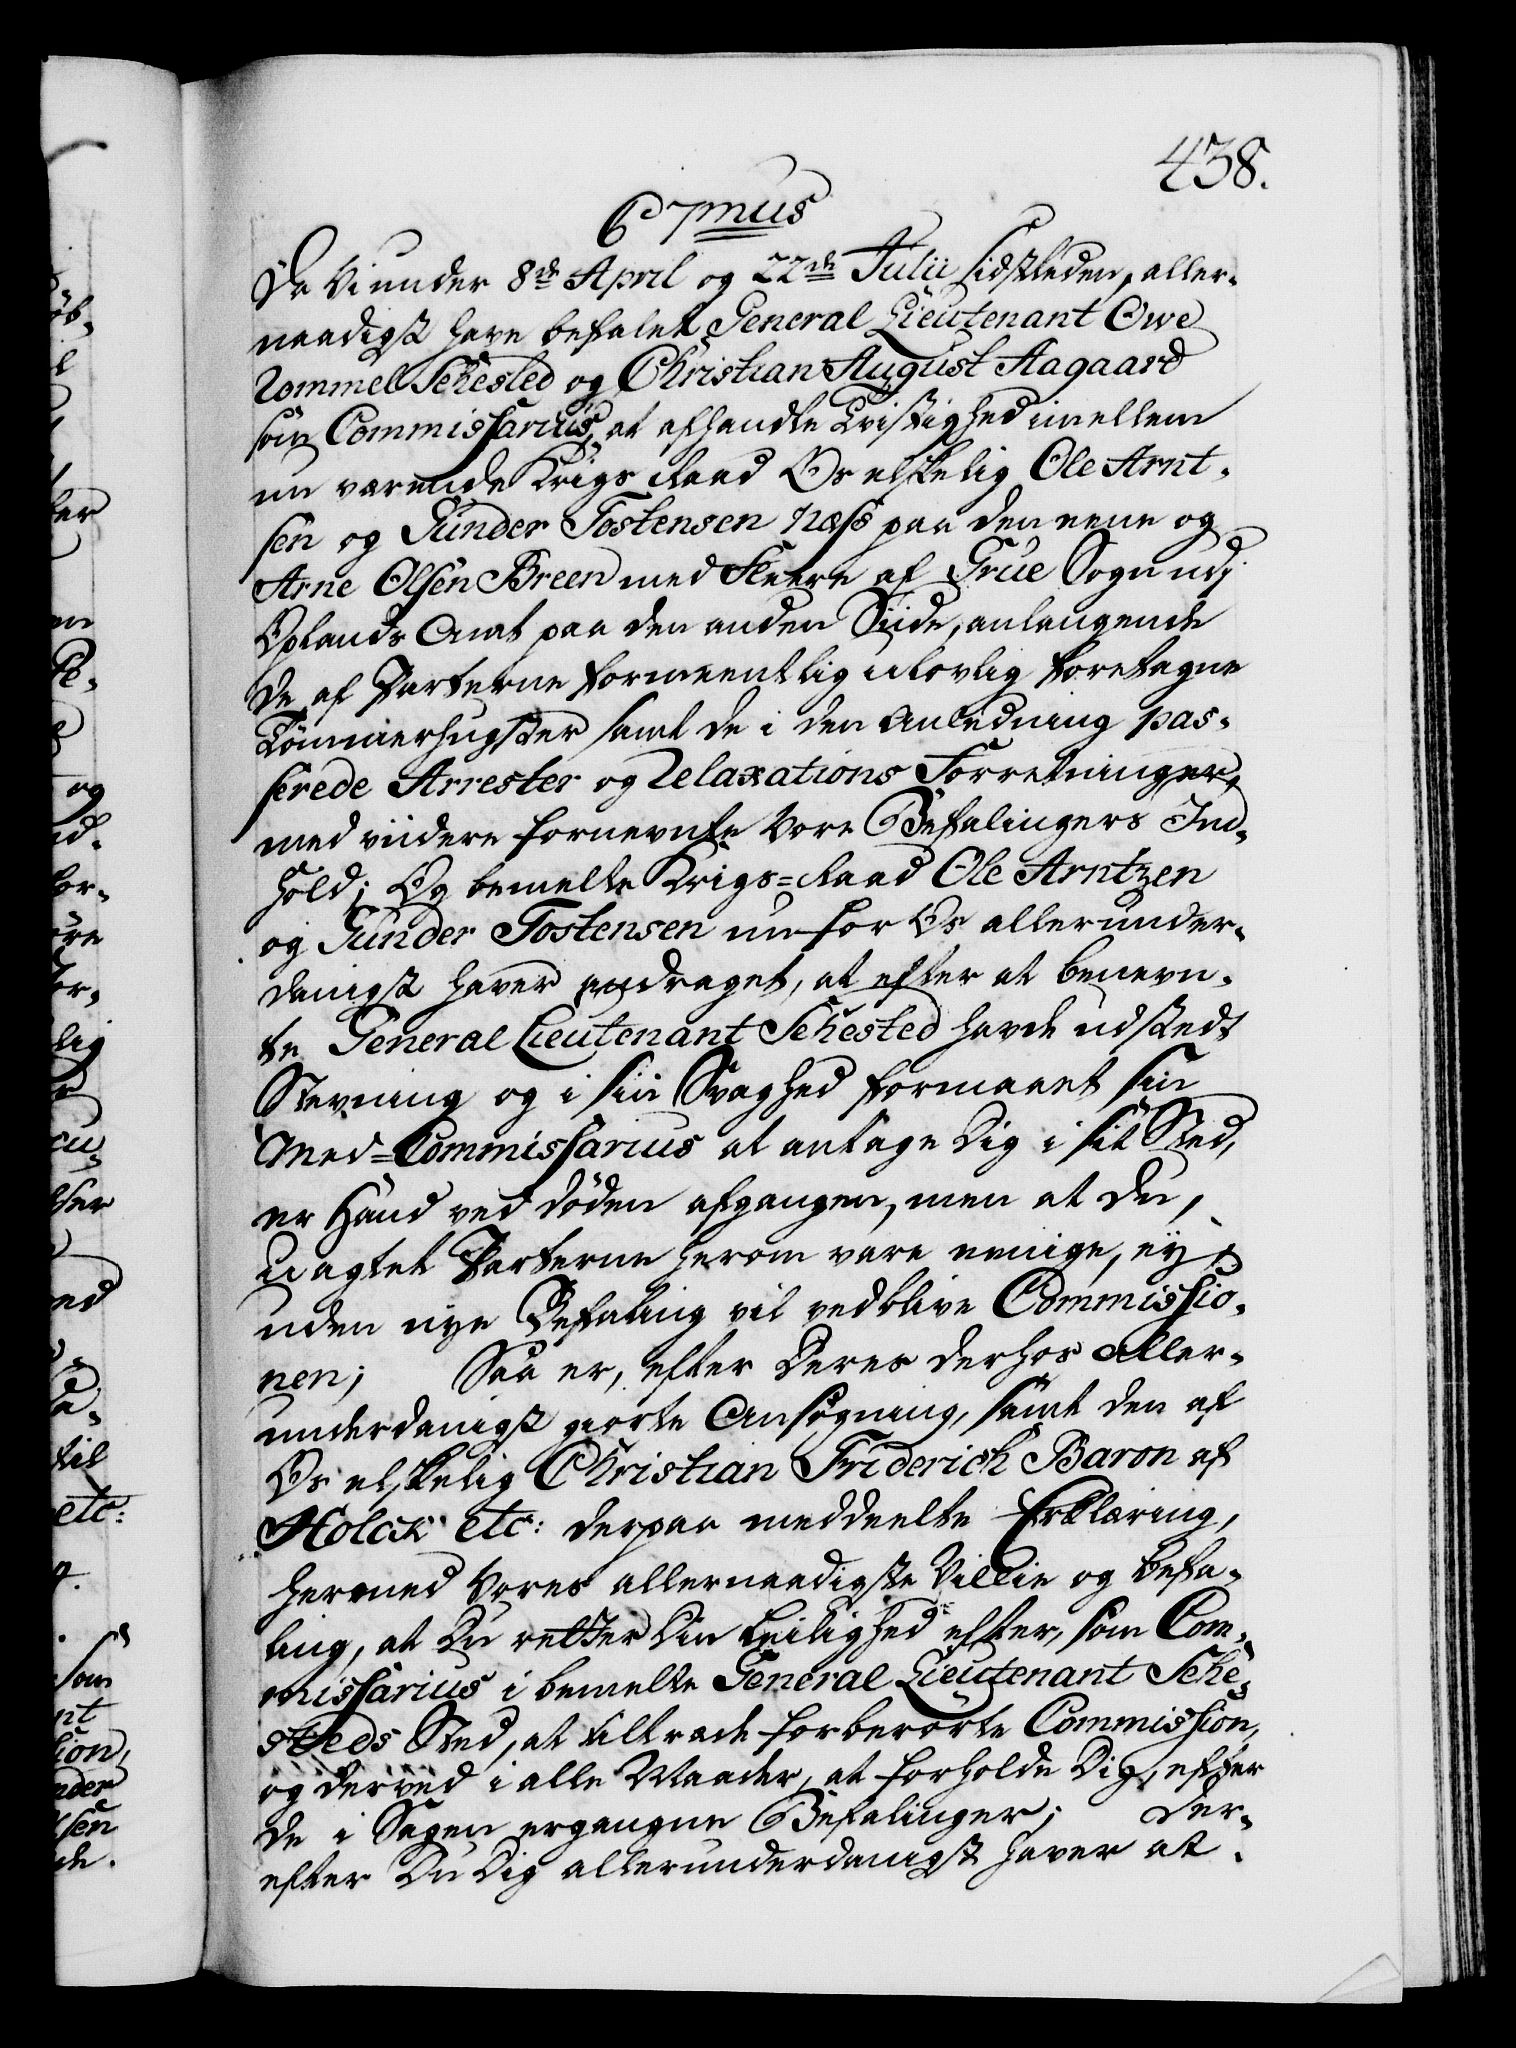 438.
C 7mus
Da Vi under 8de April og 22de Julii sidstleden, aller-
naadigst have befalet General Lieutenant Owe
Rommel Sehested og Christian August Aagaard
som Commissarius, at afhandle Tvistighed imellem
nu værende Krigs-Raad Os elskelig Ole Arnt-
sen og Gunder Tostensen Næss paa den eene og
Arne Olsen Breen med Fleere af Grue Sogn udj
Oplands Amt paa den anden Siide, anlangende
de af Parterne formeentlig ulovlig foretagne
Tømmerhugster samt de i den Anledning pas-
serede Arrester og Relaxations Forretninger,
med viidere fornevnte Vore Befalingers Ind-
hold; Og bemelte Krigs-Raad Ole Arntzen
og Gunder Tostensen nu for Os allerunder-
danigst haver andraget, at efter at benevn-
te General Lieutenant Sehested havde udstedt
Stevning og i sin Svaghed formaaet sin
Med-Commissarius at antage Dig i sit Sted,
er Hand ved døden afgangen, men at du,
uagtet Parterne herom vare eenige, ey
uden nye Befaling vil vedblive Commissio-
nen; Saa er, efter Deres derhos aller-
underdanigst giorte Ansøgning, samt den af
Os elskelig Christian Friderich Baron af
Holck etc: derpaa meddeelte Erklæring,
hermed Vores allernaadigste Villie og befa-
ling, at Du retter Din Leilighed efter, som Com-
missarius i bemelte General Lieutenant Sehe-
steds Sted, at tiltræde forberørte Commission,
og derved i alle Maader, at forholde Dig, efter
de i Sagen ergangne Befalinger; Der-
efter Du Dig allerunderdanigst haver at